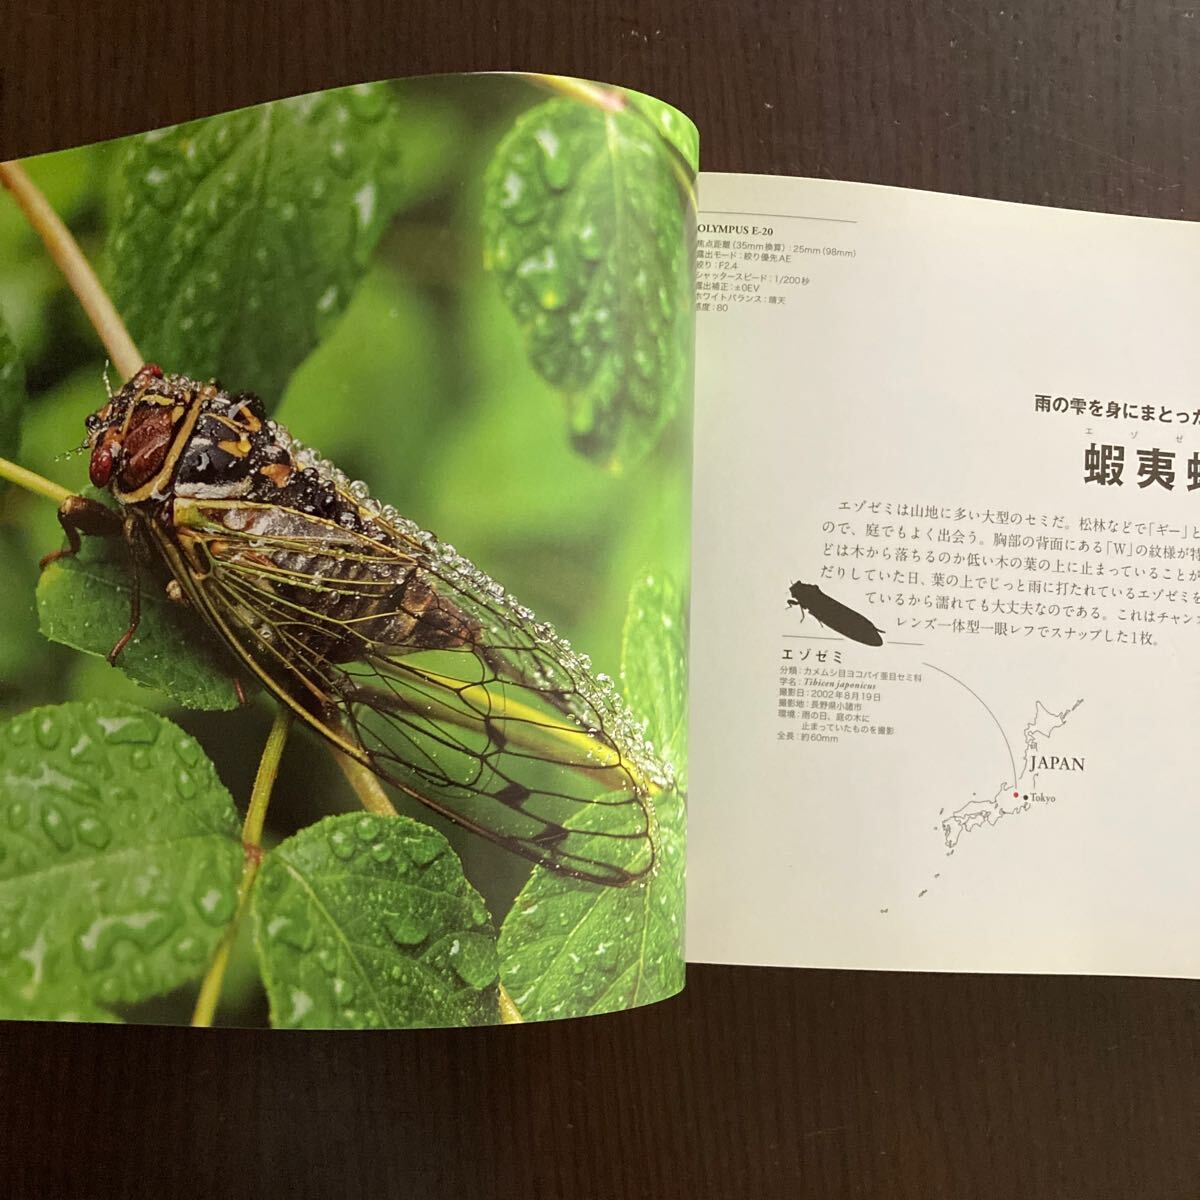 OLYMPUS E-20
焦点距離（35mm換算）：25mm（98mm）
露出モード：絞り優先AE
絞り：F2.4
シャッタースピード：1/200秒
露出補正：±0EV
ホワイトバランス：晴天
感度：80
雨の雫を身にまとった
エゾゼ
蝦夷蝉
エゾゼミは山地に多い大型のセミだ。松林などで「ギー」と
ので、庭でもよく出会う。胸部の背面にある「W」の紋様が特
どは木から落ちるのか低い木の葉の上に止まっていることが
だりしていた日、葉の上でじっと雨に打たれているエゾゼミを
ているから濡れても大丈夫なのである。これはチャン
レンズ一体型一眼レフでスナップした1枚。
エゾゼミ
分類：カメムシ目ヨコバイ亜目セミ科
学名：Tibicen japonicus
撮影日：2002年8月19日
撮影地：長野県小諸市
環境：雨の日、庭の木に
止まっていたものを撮影
全長：約60mm
JAPAN
Tokyo